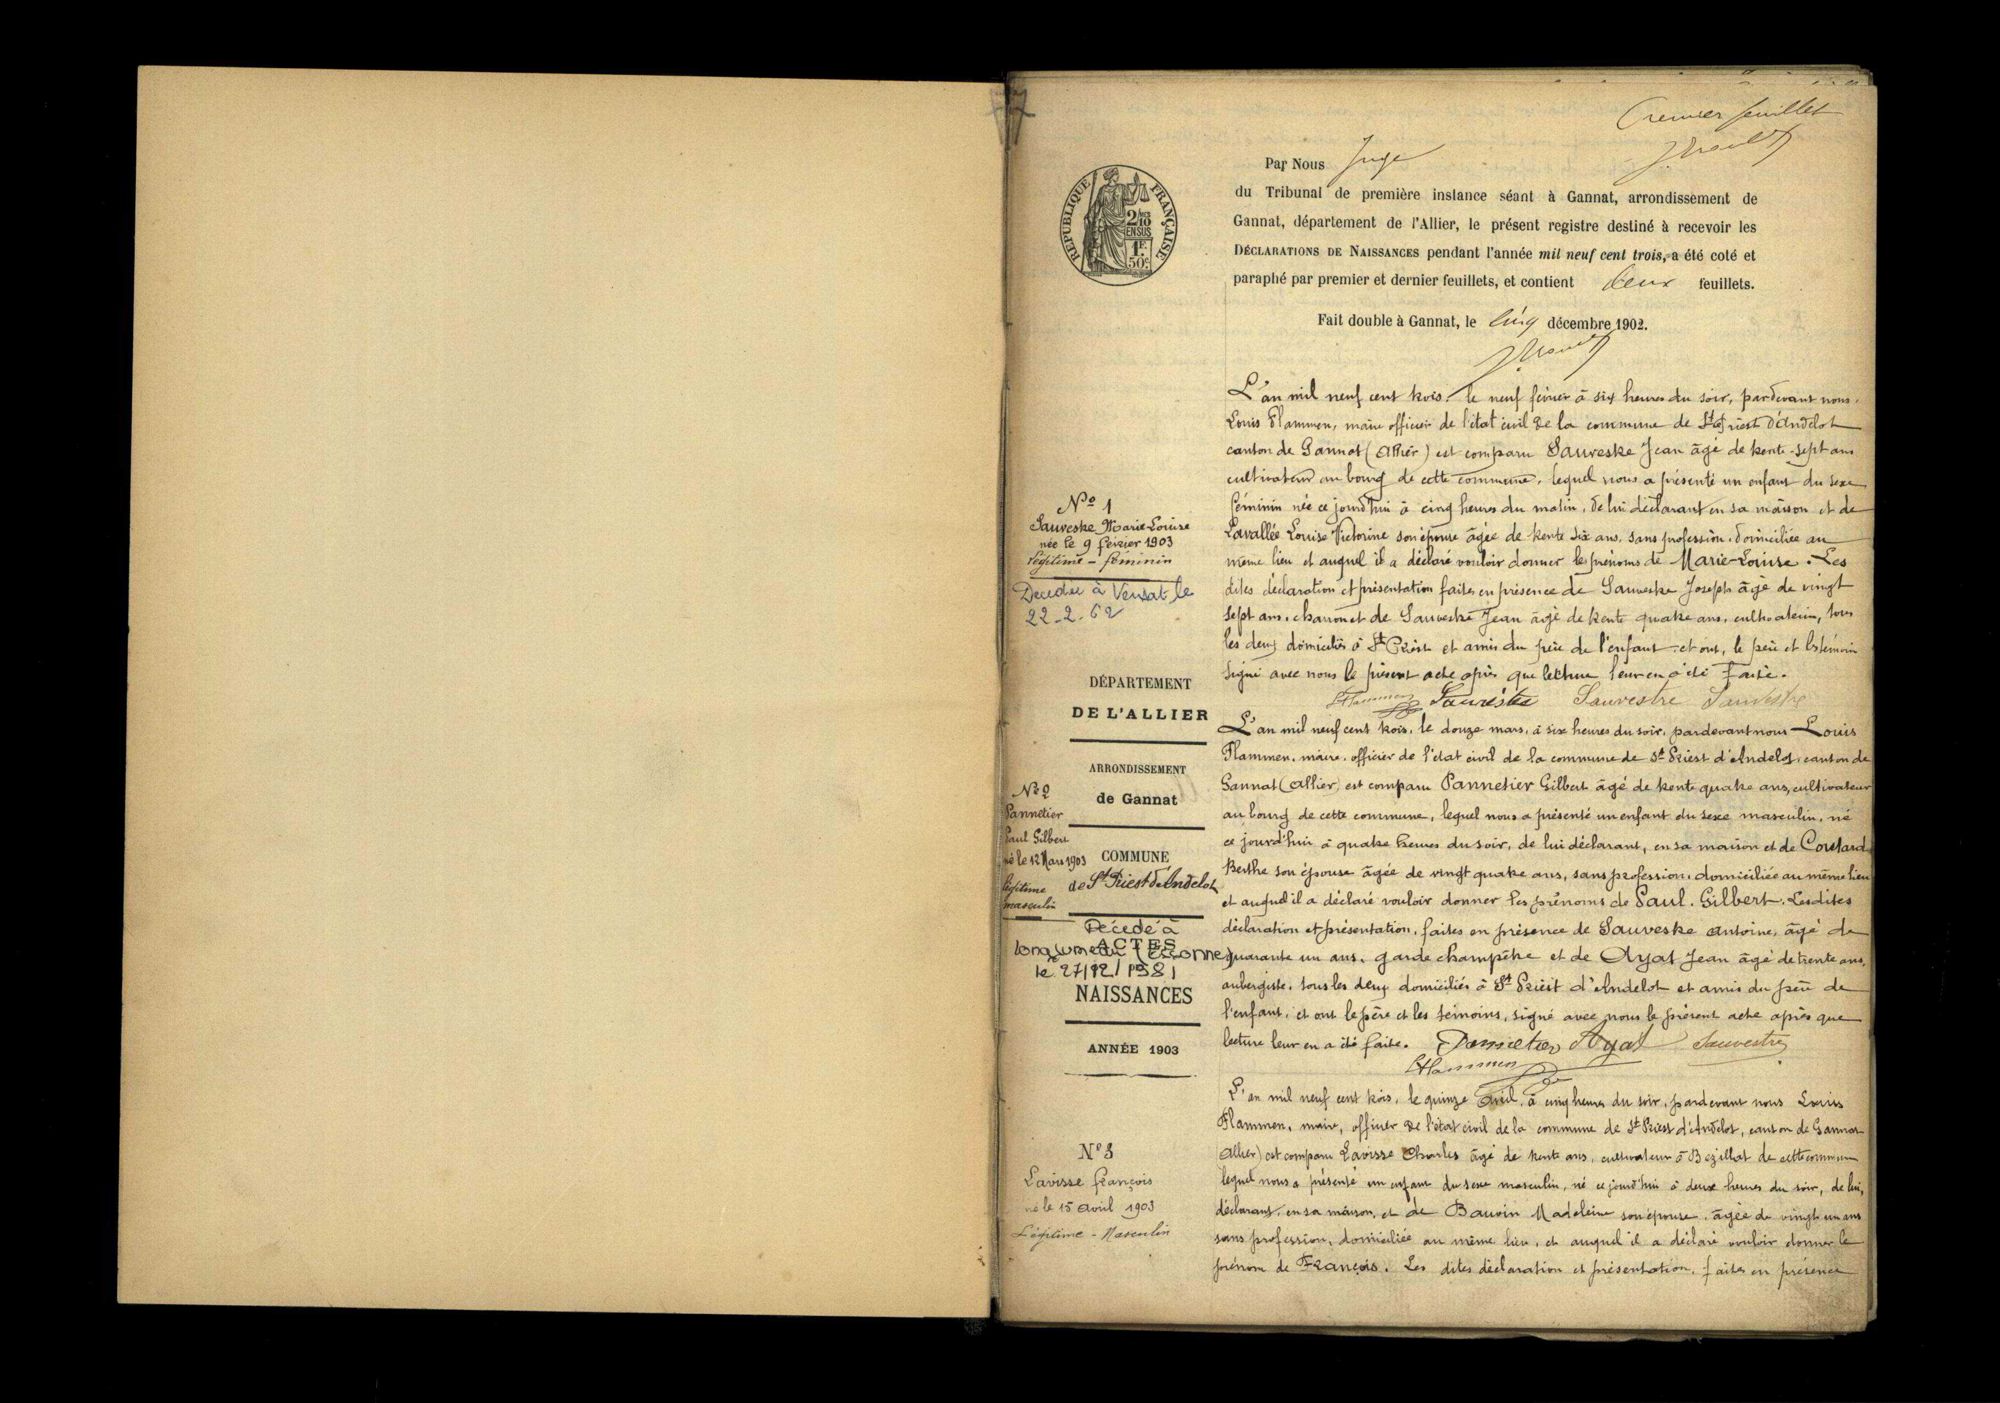 Premier feuillet
RÉPUBLIQUE FRANÇAISE
2/10 EN SUS
1F. 50c
Par Nous Juge
du Tribunal de première instance séant à Gannat, arrondissement de
Gannat, département de l'Allier, le présent registre destiné à recevoir les
DÉCLARATIONS DE NAISSANCES pendant l'année mil neuf cent trois, a été coté et
paraphé par premier et dernier feuillets, et contient deux feuillets.
Fait double à Gannat, le cinq décembre 1902.
N° 1
Sauvestre Marie Louise
née le 9 février 1903
Légitime - féminin
Décédée à Vensat le
22-2-62
L'an mil neuf cent trois, le neuf février à six heures du soir, pardevant nous,
Louis Flammen, maire officier de l'état civil de la commune de St Priest d'Andelot
canton de Gannat (Allier) est comparu Sauvestre Jean âgé de trente-sept ans
cultivateur au bourg de cette commune, lequel nous a présenté un enfant du sexe
féminin née ce jourd'hui à cinq heures du matin, de lui déclarant en sa maison et de
Lavallée Louise Victorine son épouse âgée de trente six ans, sans profession, domiciliée au
même lieu et auquel il a déclaré vouloir donner les prénoms de Marie-Louise. Les
dites déclaration et présentation faites en présence de Sauvestre Joseph âgé de vingt
sept ans, charron et de Sauvestre Jean âgé de trente quatre ans, cultivateur, tous
les deux domiciliés à St Priest et amis du père de l'enfant et ont, le père et les témoin
signé avec nous le présent acte après que lecture leur en a été faite.
LFlammen Sauvestre Sauvestre Sauvestre
DÉPARTEMENT
DE L'ALLIER
ARRONDISSEMENT
de Gannat
COMMUNE
de St Priest d'Andelot
ACTES
NAISSANCES
ANNÉE 1903
N° 2
Pannetier
Paul Gilbert
né le 12 Mars 1903
légitime
masculin
Décédé à
Longjumeau (Essonne)
le 27/12/1981
L'an mil neuf cent trois, le douze mars, à six heures du soir, pardevant nous Louis
Flammen, maire, officier de l'état civil de la commune de St Priest d'Andelot, canton de
Gannat (Allier) est comparu Pannetier Gilbert âgé de trente quatre ans, cultivateur
au bourg de cette commune, lequel nous a présenté un enfant du sexe masculin, né
ce jourd'hui à quatre heures du soir, de lui déclarant, en sa maison et de Coulard
Berthe son épouse âgée de vingt quatre ans, sans profession, domiciliée au même lieu
et auquel il a déclaré vouloir donner les prénoms de Paul. Gilbert. Lesdites
déclaration et présentation, faites en présence de Sauvestre Antoine, âgé de
quarante un ans, garde champêtre et de Ayat Jean âgé de trente ans,
aubergiste, tous les deux domiciliés à St Priest d'Andelot et amis du père de
l'enfant, et ont le père et les témoins, signé avec nous le présent acte après que
lecture leur en a été faite. Pannetier Ayat Sauvestre
LFlammen
N° 3
Lavisse François
né le 15 avril 1903
Légitime - Masculin
L'an mil neuf cent trois, le quinze avril, à cinq heures du soir, pardevant nous Louis
Flammen, maire, officier de l'état civil de la commune de St Priest d'Andelot, canton de Gannat
Allier) est comparu Lavisse Charles âgé de trente ans, cultivateur à Bezillat de cette commune
lequel nous a présenté un enfant du sexe masculin, né ce jourd'hui à deux heures du soir, de lui,
déclarant, en sa maison, et de Bauvin Madeleine son épouse, âgée de vingt un ans
sans profession, domiciliée au même lieu, et auquel il a déclaré vouloir donner le
prénom de François. Les dites déclaration et présentation, faites en présence